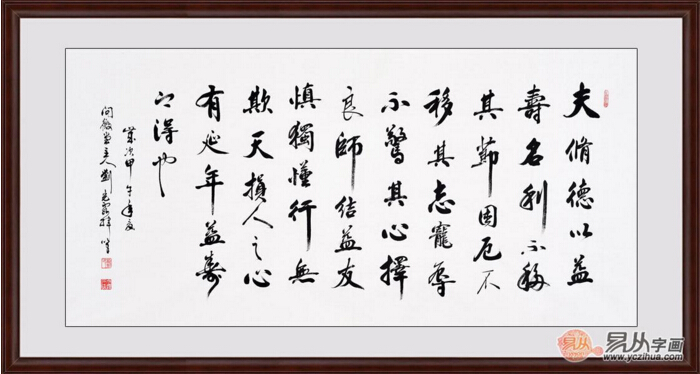 夫脩德以益
壽名利不移
其節困厄不
移其志寵辱
不驚其心擇
良師結益友
慎獨慬行無
欺天損人之心
有延年益壽
之得也
歲次甲午年夏
主人劉
易从
易从字画
www.yczihua.com